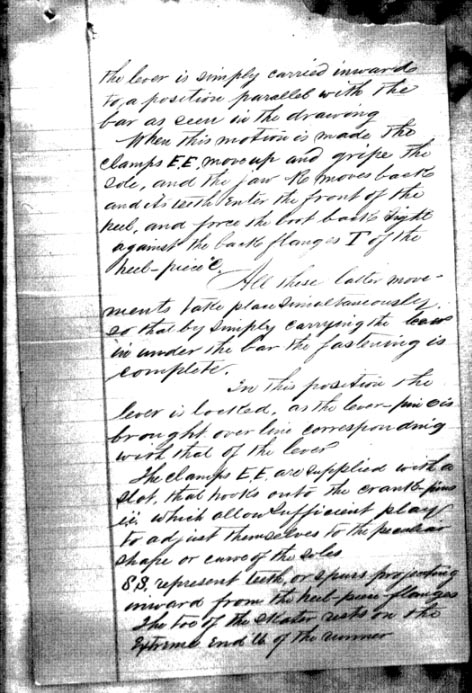 the lever is simply carried inwards
to, a position parallel with the
bar as seen in the drawing
When this motion is made the
clamps E.E. move up and gripe the
sole, and the jaw K moves back
and its teeth enter the front of the
heel, and force the boot back tight
against the back flanges T of the
heel-piece
All these latter move-
ments take place simultaneously,
so that by simply carrying the lever
in under the bar the fastening is
complete.
In this position the
lever is locked, as the lever-pin is
brought over line corresponding
with that of the lever
The clamps E.E. are supplied with a
slot, that hooks onto the crank-pins
i.i. which allow sufficient play
to adjust themselves to the peculiar
shape or curve of the soles
S.S. represent teeth, or spurs projecting
inward from the heel-piece flanges
The toe of the skater rests on the
extreme end of the runner